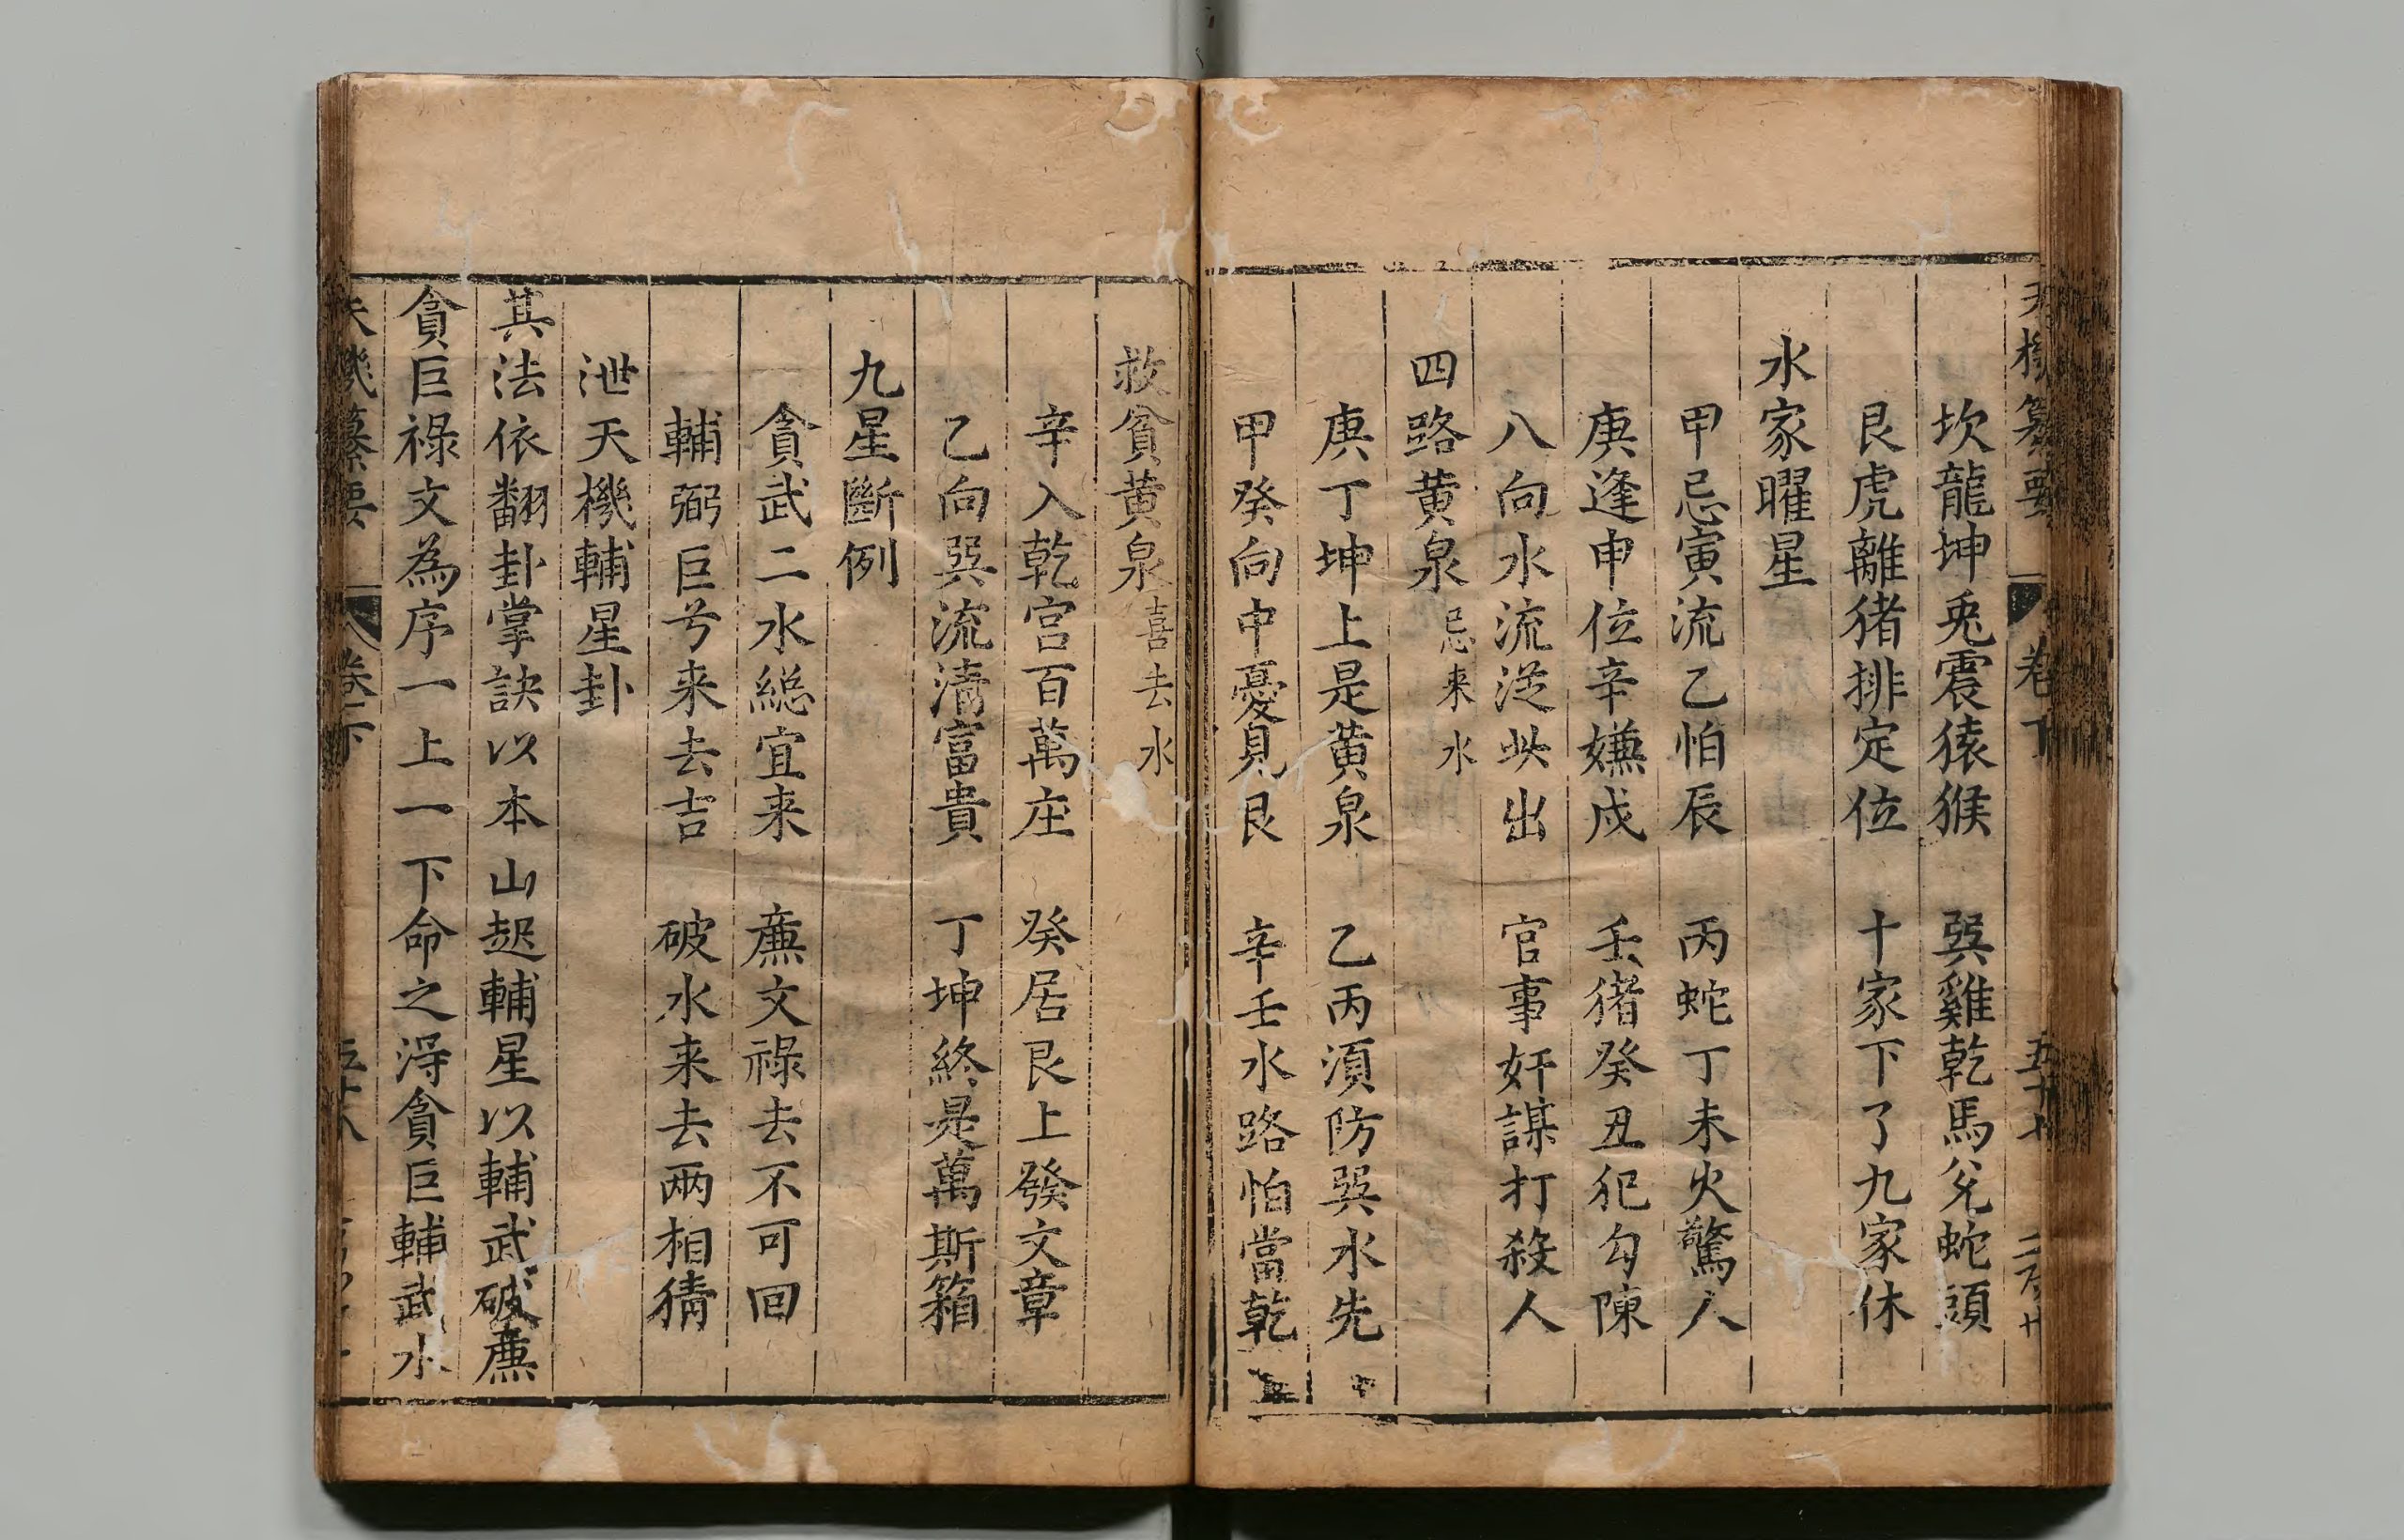 天機纂要 卷下 五十七
坎龍坤兎震猿猴 巽雞乾馬兌蛇頭
艮虎離猪排定位 十家下了九家休
水家曜星
甲忌寅流乙怕辰 丙蛇丁未火驚人
庚逢申位辛嫌戍 壬猪癸丑犯勾陳
八向水流从此出 官事奸謀打殺人
四路黄泉 忌来水
庚丁坤上是黄泉 乙丙湏防巽水先
甲癸向中憂見艮 辛壬水路怕當乾
救貧黄泉 喜去水
辛入乾宫百萬庄 癸居艮上發文章
乙向巽流清富貴 丁坤終是萬斯箱
九星斷例
貪武二水総宜来 廉文祿去不可回
輔弼巨兮来去吉 破水来去兩相猜
泄天機輔星卦
其法依翻卦掌訣以本山起輔星以輔武破廉
貪巨祿文為序一上一下命之淂貪巨輔武水
天機纂要 卷下 五十八